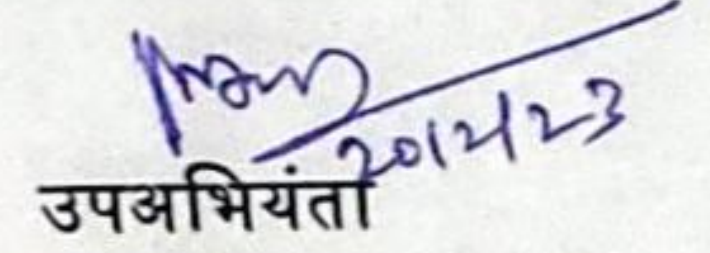 20/2/23
उपअभियंता